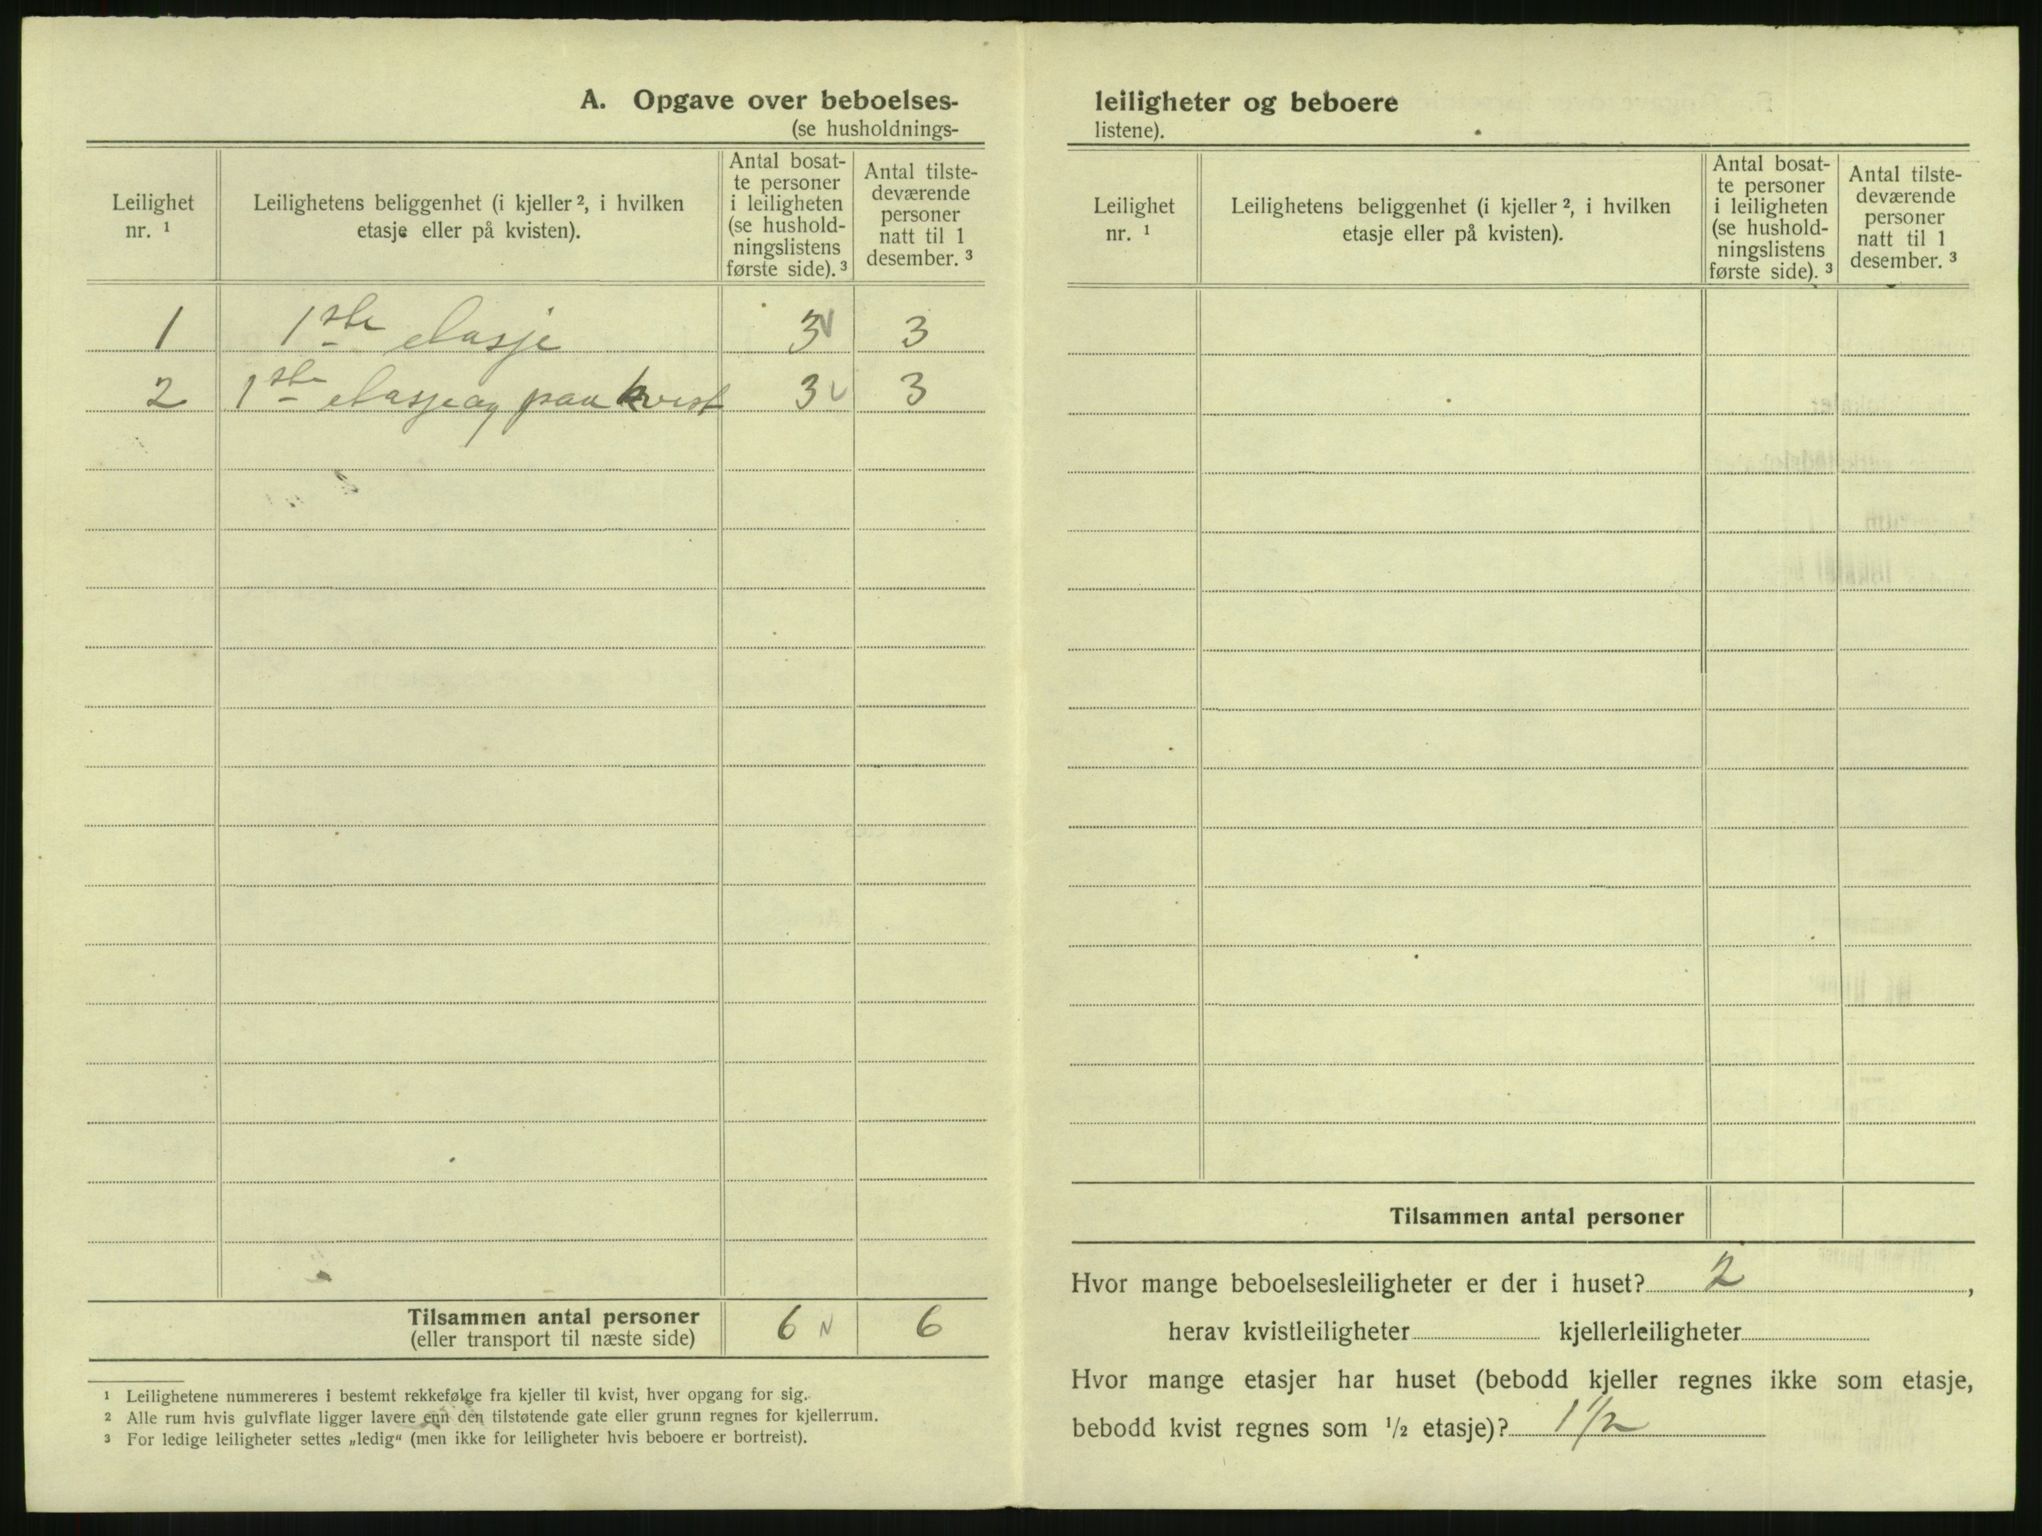 A. Opgave over beboelses-
(se husholdnings-
Leilighet
nr. ¹
Leilighetens beliggenhet (i kjeller ², i hvilken
etasje eller på kvisten).
Antal bosat-
te personer
i leiligheten
(se hushold-
ningslistens
første side). ³
Antal tilste-
deværende
personer
natt til 1
desember. ³
1 1ste etasje 3 3
2 1ste etasje og paa kvist 3 3
Tilsammen antal personer 6 6
(eller transport til næste side)
¹ Leilighetene nummereres i bestemt rekkefølge fra kjeller til kvist, hver opgang for sig.
² Alle rum hvis gulvflate ligger lavere enn den tilstøtende gate eller grunn regnes for kjellerrum.
³ For ledige leiligheter settes „ledig“ (men ikke for leiligheter hvis beboere er bortreist).
leiligheter og beboere
listene).
Leilighet
nr. ¹
Leilighetens beliggenhet (i kjeller ², i hvilken
etasje eller på kvisten).
Antal bosat-
te personer
i leiligheten
(se hushold-
ningslistens
første side). ³
Antal tilste-
deværende
personer
natt til 1
desember. ³
Tilsammen antal personer
Hvor mange beboelsesleiligheter er der i huset? 2,
herav kvistleiligheter kjellerleiligheter
Hvor mange etasjer har huset (bebodd kjeller regnes ikke som etasje,
bebodd kvist regnes som ½ etasje)? 1 1/2